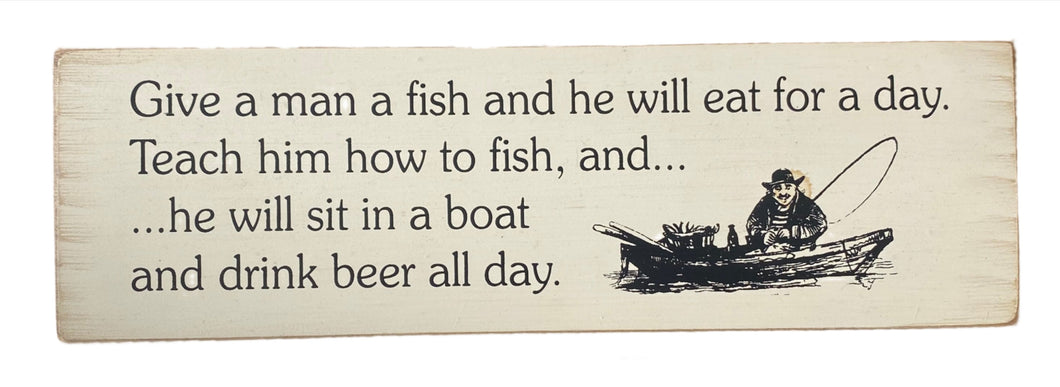 Give a man a fish and he will eat for a day.
Teach him how to fish, and...
...he will sit in a boat
and drink beer all day.